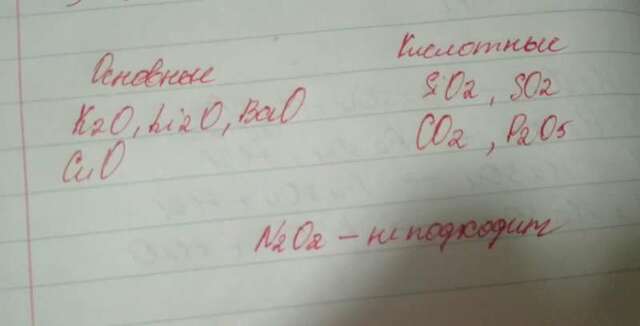 Основные
K2O, Li2O, BaO
CuO
Кислотные
SiO2, SO2
CO2, P2O5
N2O2 – не подходит